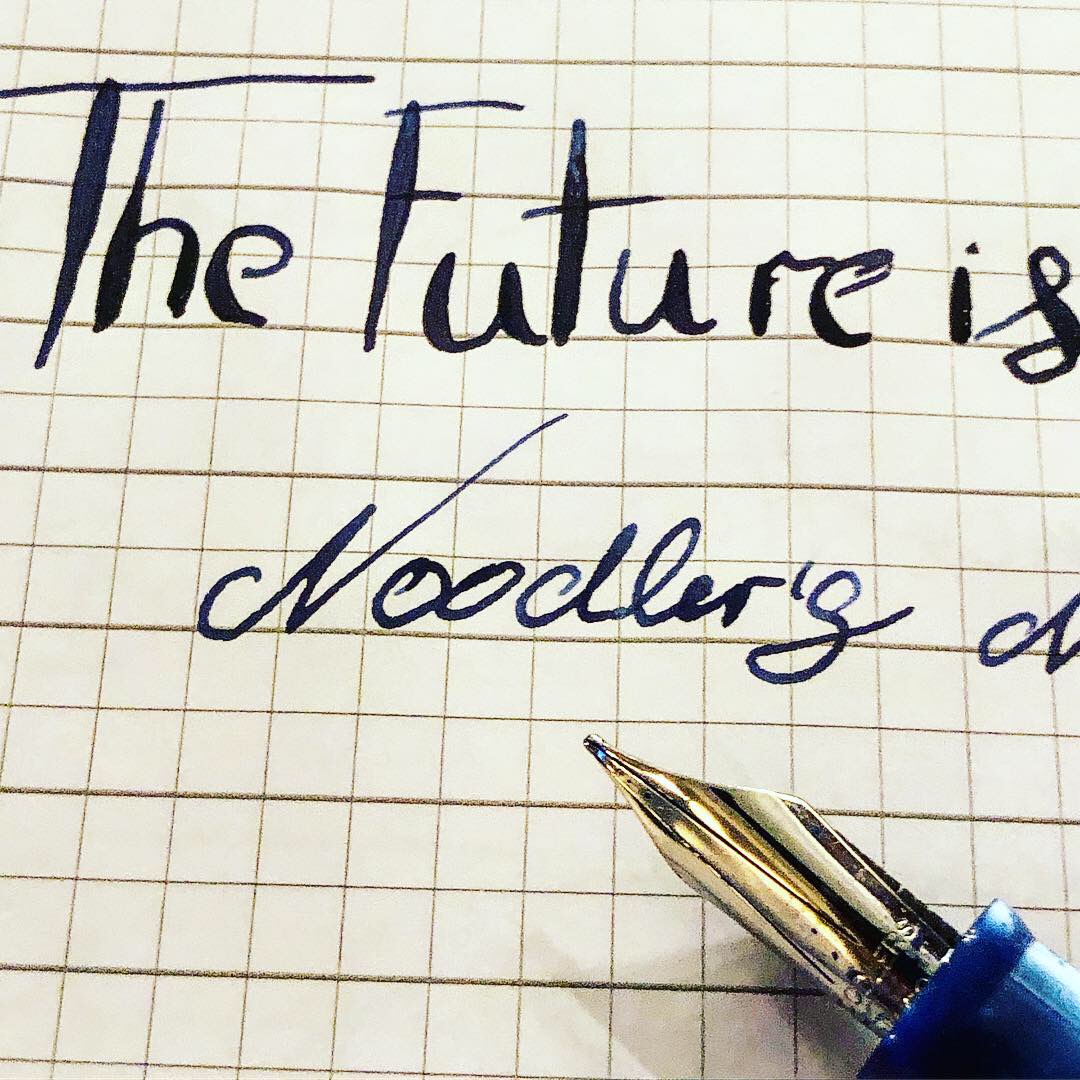 The Future is
Noodler's